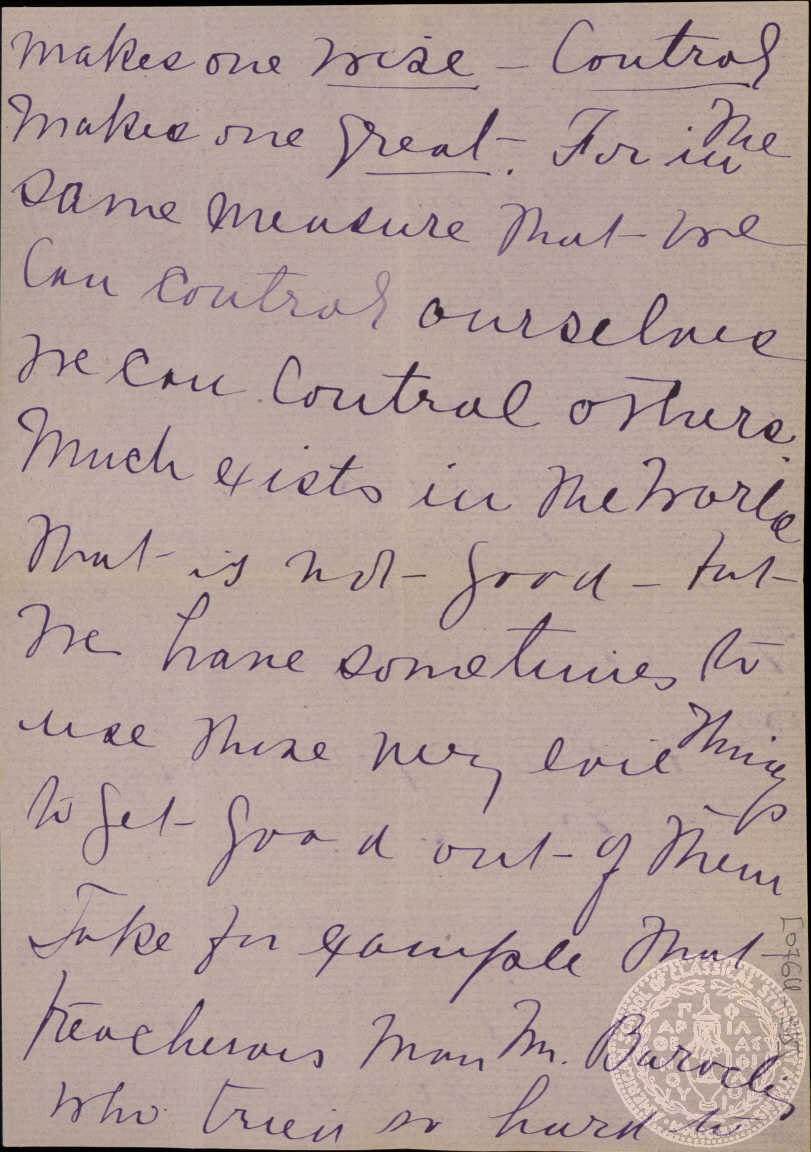 makes one wise – Control
makes one great. For in the
same measure that we
Can control ourselves
we can Control others.
Much exists in the World
that is not good – but
we have sometimes to
use these very evil things
to get good out of them
Take for example that
treacherous man M.
who tried so hard to